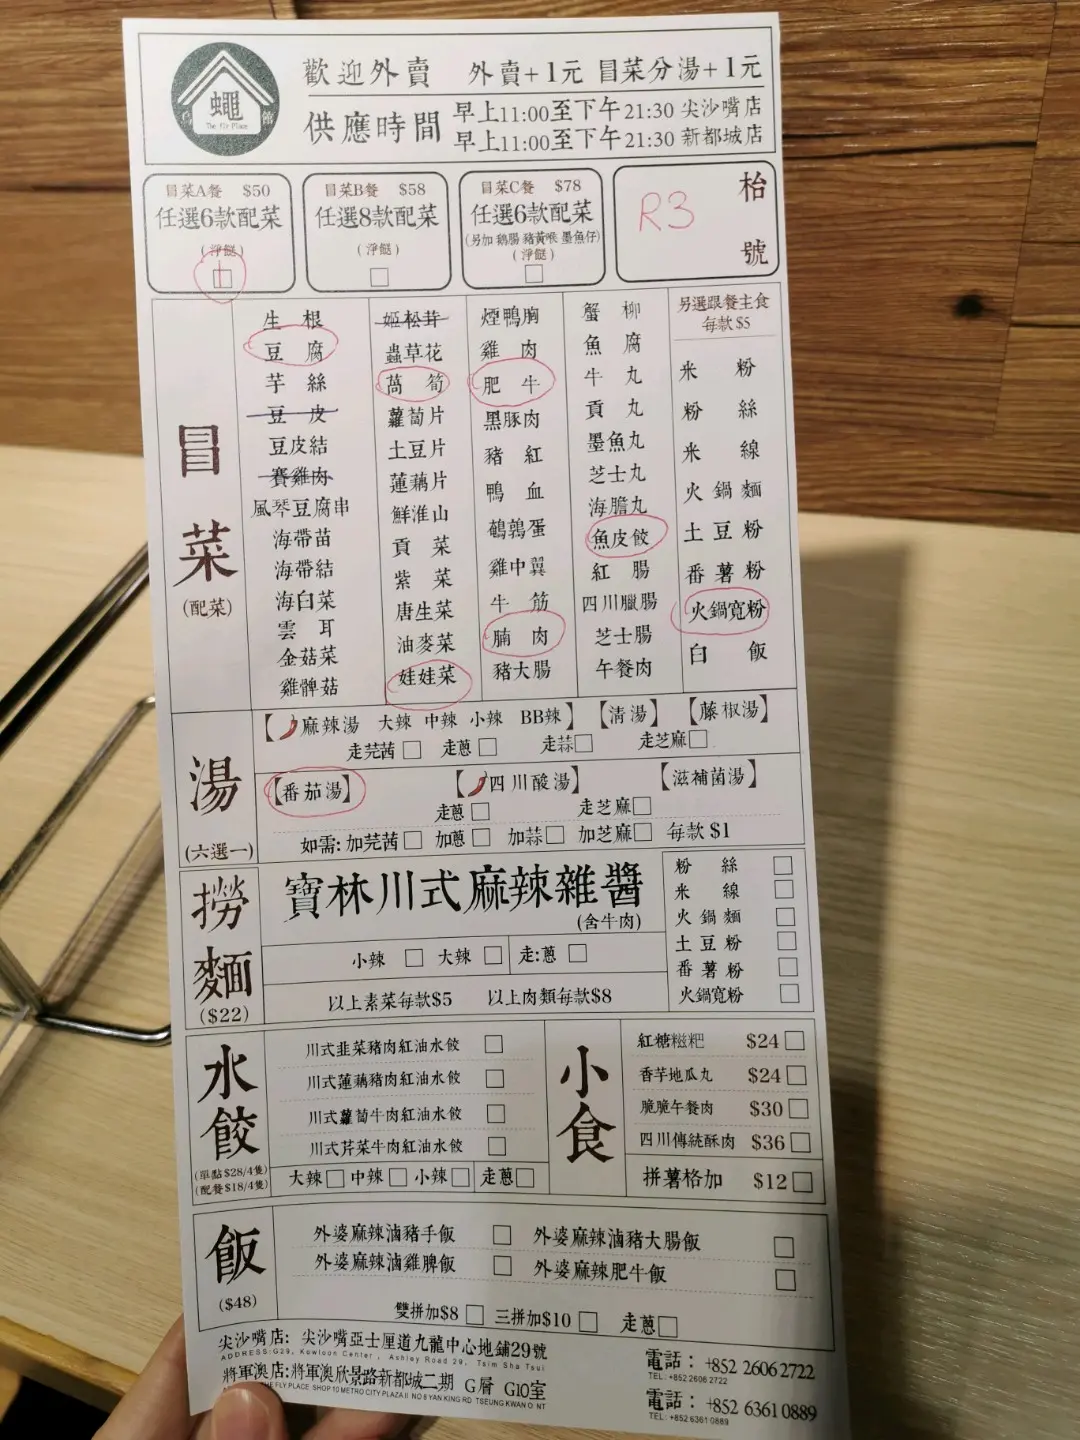 蠅
The Fly Place
館
歡迎外賣 外賣+1元 冒菜分湯+1元
供應時間
早上11:00至下午21:30 尖沙嘴店
早上11:00至下午21:30 新都城店
冒菜A餐 $50
任選6款配菜
(淨餸)
冒菜B餐 $58
任選8款配菜
(淨餸)
冒菜C餐 $78
任選6款配菜
(另加 鵝腸 豬黃喉 墨魚仔)
(淨餸)
枱號
R3
冒菜
(配菜)
生根
豆腐
芋絲
豆皮
豆皮結
賽雞肉
風琴豆腐串
海帶苗
海帶結
海白菜
雲耳
金菇菜
雞髀菇
姬松茸
蟲草花
萵筍
蘿蔔片
土豆片
蓮藕片
鮮淮山
貢菜
紫菜
唐生菜
油麥菜
娃娃菜
煙鴨胸
雞肉
肥牛
黑豚肉
豬紅
鴨血
鵪鶉蛋
雞中翼
牛筋
腩肉
豬大腸
蟹柳
魚腐
牛丸
貢丸
墨魚丸
芝士丸
海膽丸
魚皮餃
紅腸
四川臘腸
芝士腸
午餐肉
另選跟餐主食
每款 $5
米粉
粉絲
米線
火鍋麵
土豆粉
番薯粉
火鍋寬粉
白飯
湯
(六選一)
【麻辣湯 大辣 中辣 小辣 BB辣】【清湯】【藤椒湯】
走芫茜 走蔥 走蒜 走芝麻
【番茄湯】【四川酸湯】【滋補菌湯】
走蔥 走芝麻
如需: 加芫茜 加蔥 加蒜 加芝麻 每款 $1
撈麵
($22)
寶林川式麻辣雜醬
(含牛肉)
小辣 大辣 走:蔥
以上素菜每款$5 以上肉類每款$8
粉絲
米線
火鍋麵
土豆粉
番薯粉
火鍋寬粉
水餃
(單點 $28/4隻)
(配餐 $18/4隻)
川式韭菜豬肉紅油水餃
川式蓮藕豬肉紅油水餃
川式蘿蔔牛肉紅油水餃
川式芹菜牛肉紅油水餃
大辣 中辣 小辣 走蔥
小食
紅糖糍粑 $24
香芋地瓜丸 $24
脆脆午餐肉 $30
四川傳統酥肉 $36
拼薯格加 $12
飯
($48)
外婆麻辣滷豬手飯
外婆麻辣滷豬大腸飯
外婆麻辣滷雞脾飯
外婆麻辣肥牛飯
雙拼加$8 三拼加$10 走蔥
尖沙嘴店: 尖沙嘴亞士厘道九龍中心地鋪29號
ADDRESS:G29, Kowloon Center, Ashley Road 29, Tsim Sha Tsui
電話: +852 2606 2722
TEL: +852 2606 2722
將軍澳店:將軍澳欣景路新都城二期 G層 G10室
THE FLY PLACE SHOP 10 METRO CITY PLAZA II NO 8 YAN KING RD TSEUNG KWAN O NT
電話: +852 6361 0889
TEL: +852 6361 0889